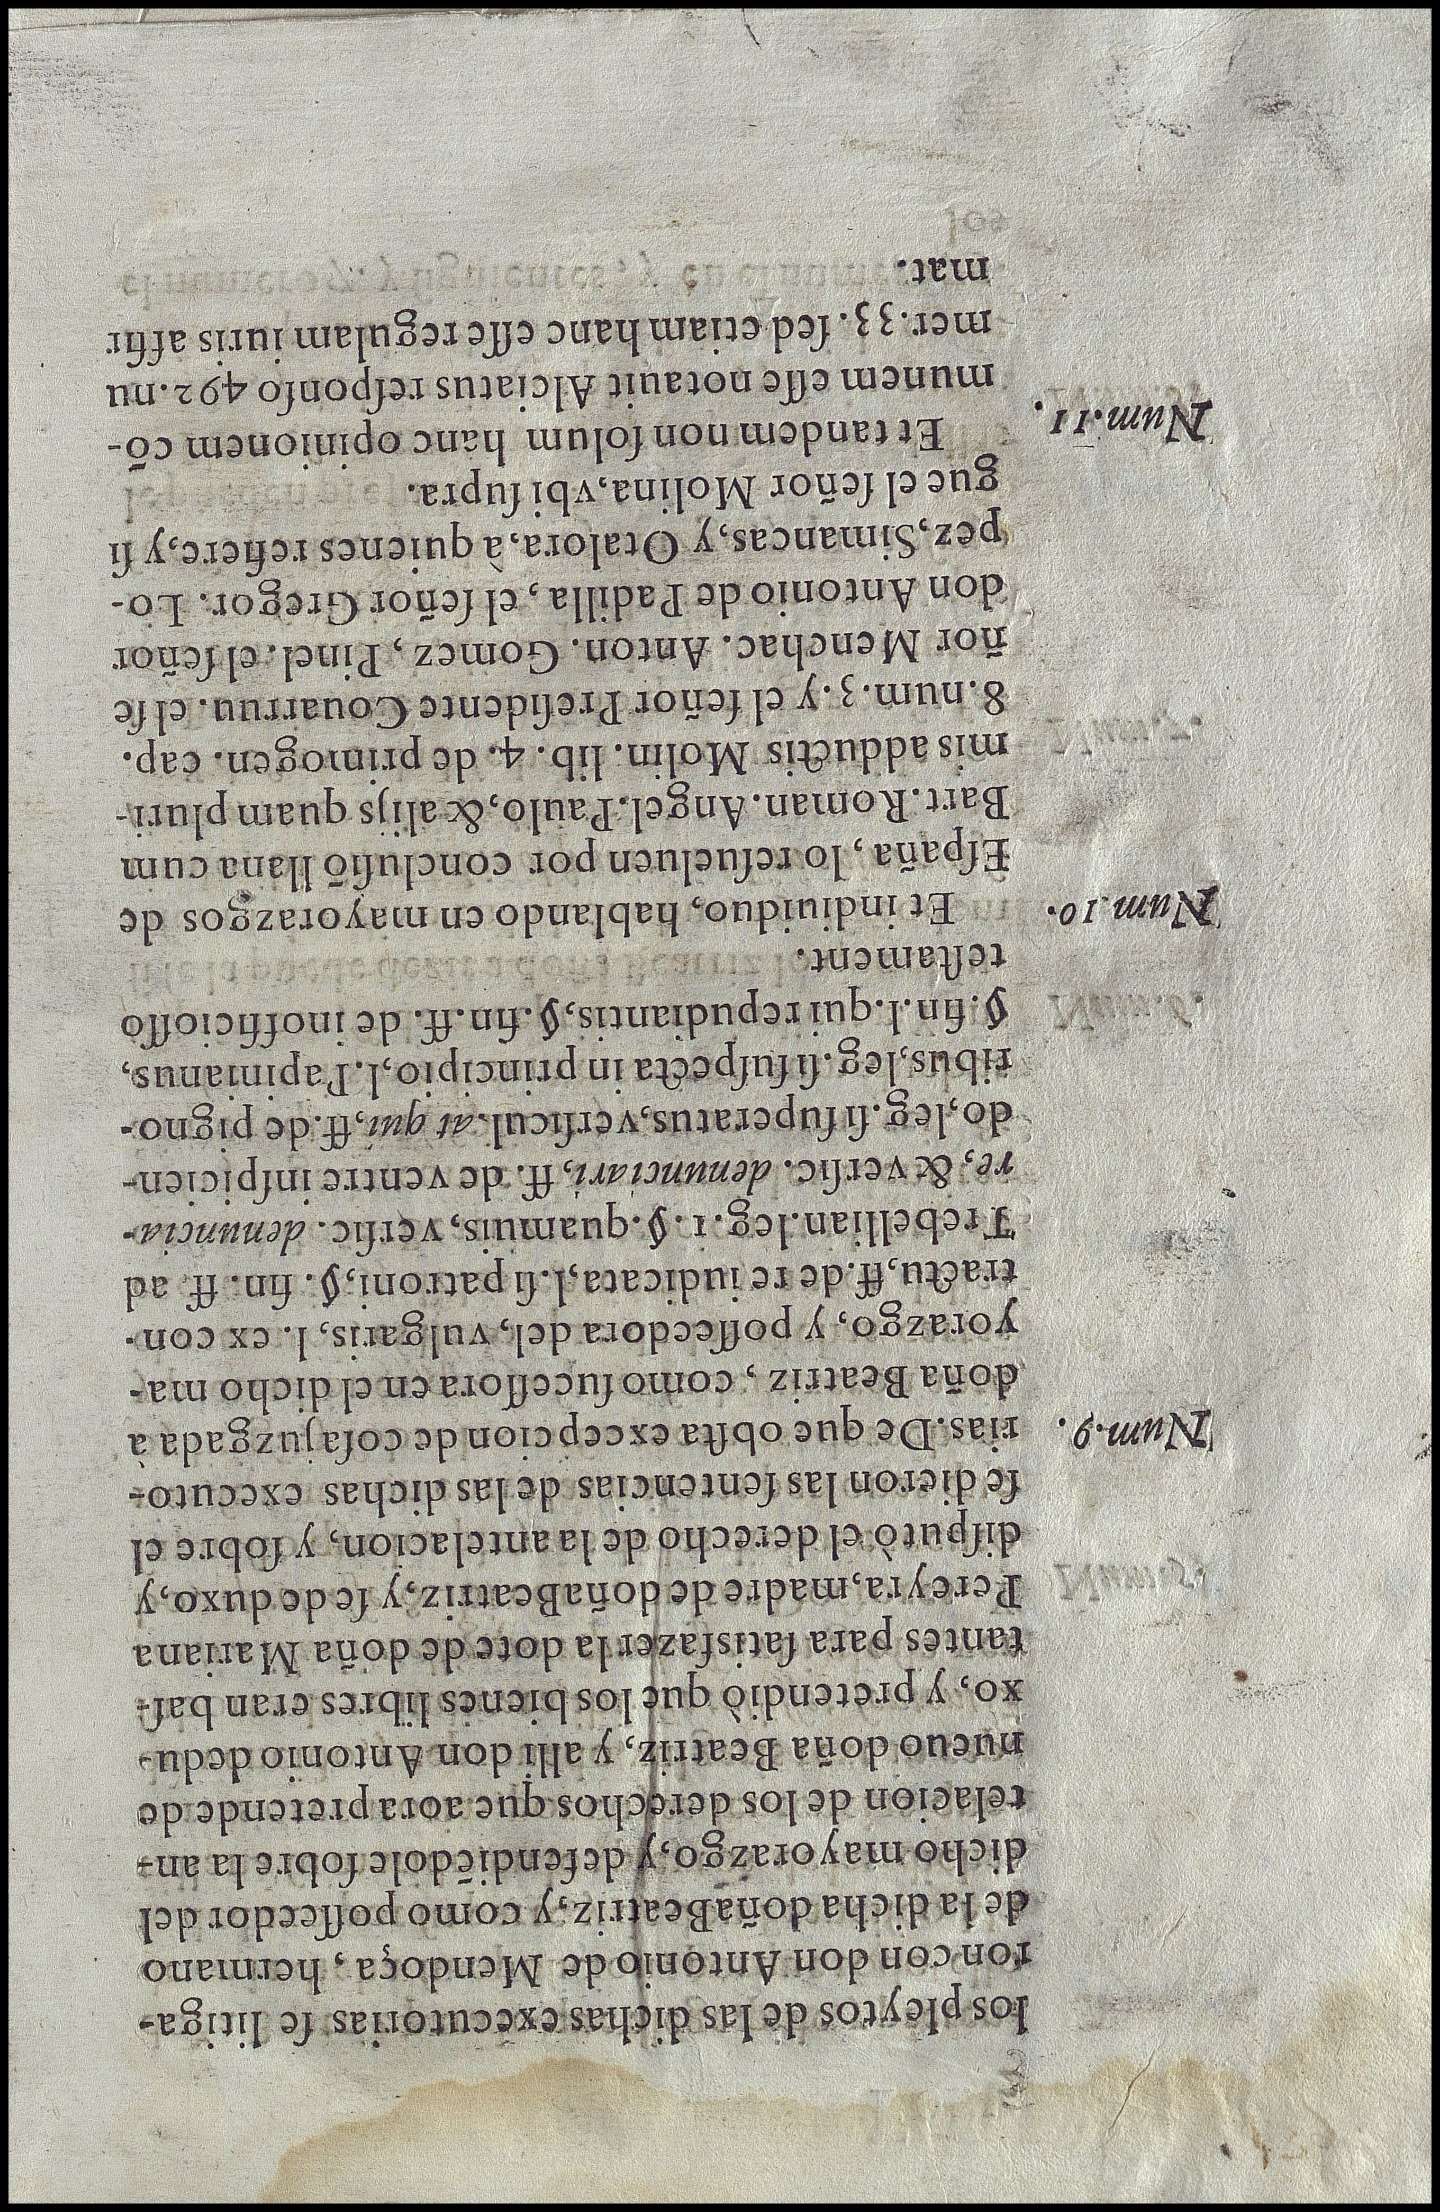 los pleytos de las dichas executorias ſe litiga-
ron con don Antonio de Mendoça, hermano
de la dicha doña Beatriz, y como poſſeedor del
dicho mayorazgo, y defendiẽdoſe ſobre la an-
telacion de los derechos que aora pretende de
nueuo doña Beatriz, y alli don Antonio dedu-
xo, y pretendiò que los bienes libres eran baſ-
tantes para ſatisfazer la dote de doña Mariana
Pereyra, madre de doña Beatriz, y ſe deduxo, y
diſputò el derecho de la antelacion, y ſobre el
ſe dieron las ſentencias de las dichas executo-
Num.9. rias. De que obſta excepcion de coſa juzgada à
doña Beatriz, como ſuceſſora en el dicho ma-
yorazgo, y poſſeedora del, vulgaris, l. ex con-
tractu, ff. de re iudicata, l. ſi patroni, §. fin. ff. ad
Trebellian. leg. 1. §. quamuis, verſic. denuncia-
re, & verſic. denunciari, ff. de ventre inſpicien-
do, leg. ſi ſuperatus, verſicul. at qui, ff. de pigno-
ribus, leg. ſi ſuſpecta in principio, l. Papinianus,
§. fin. l. qui repudiantis, §. fin. ff. de inofficioſſo
teſtament.
Num.10. Et indiuiduo, hablando en mayorazgos de
Eſpaña, lo reſueluen por concluſiõ llana cum
Bart. Roman. Angel. Paulo, & alijs quam pluri-
mis adductis Molin. lib. 4. de primogen. cap.
8. num. 3. y el ſeñor Preſidente Couarruu. el ſe
ñor Menchac. Anton. Gomez, Pinel. el ſeñor
don Antonio de Padilla, el ſeñor Gregor. Lo-
pez, Simancas, y Otalora, à quienes refiere, y ſi
gue el ſeñor Molina, vbi ſupra.
Num.11. Et tandem non ſolum hanc opinionem cõ-
munem eſſe notauit Alciatus reſponſo 492. nu
mer. 33. ſed etiam hanc eſſe regulam iuris affir
mat.